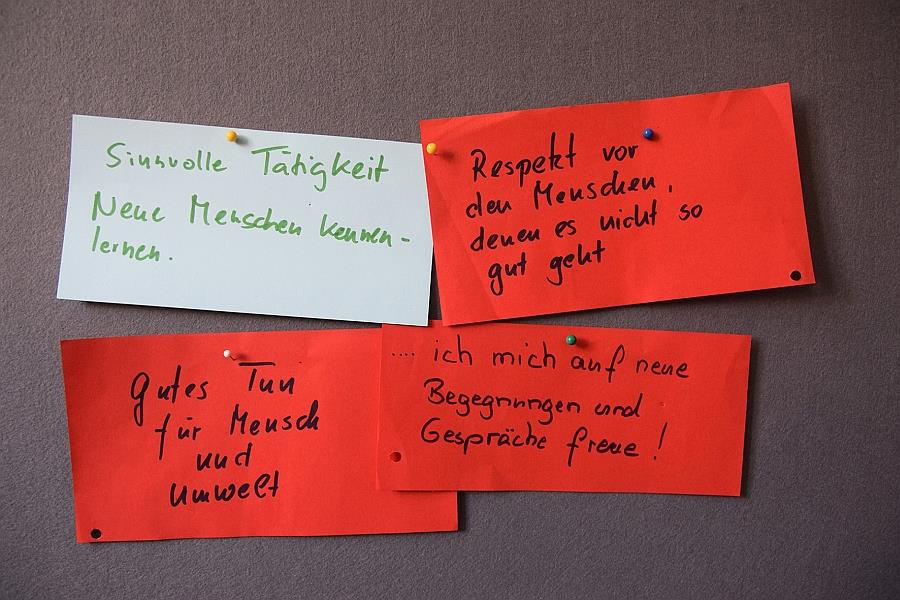 Sinnvolle Tätigkeit
Neue Menschen kennen-
lernen.
Respekt vor
den Menschen,
denen es nicht so
gut geht
Gutes Tun
für Mensch
und
Umwelt
.... ich mich auf neue
Begegnungen und
Gespräche freue!